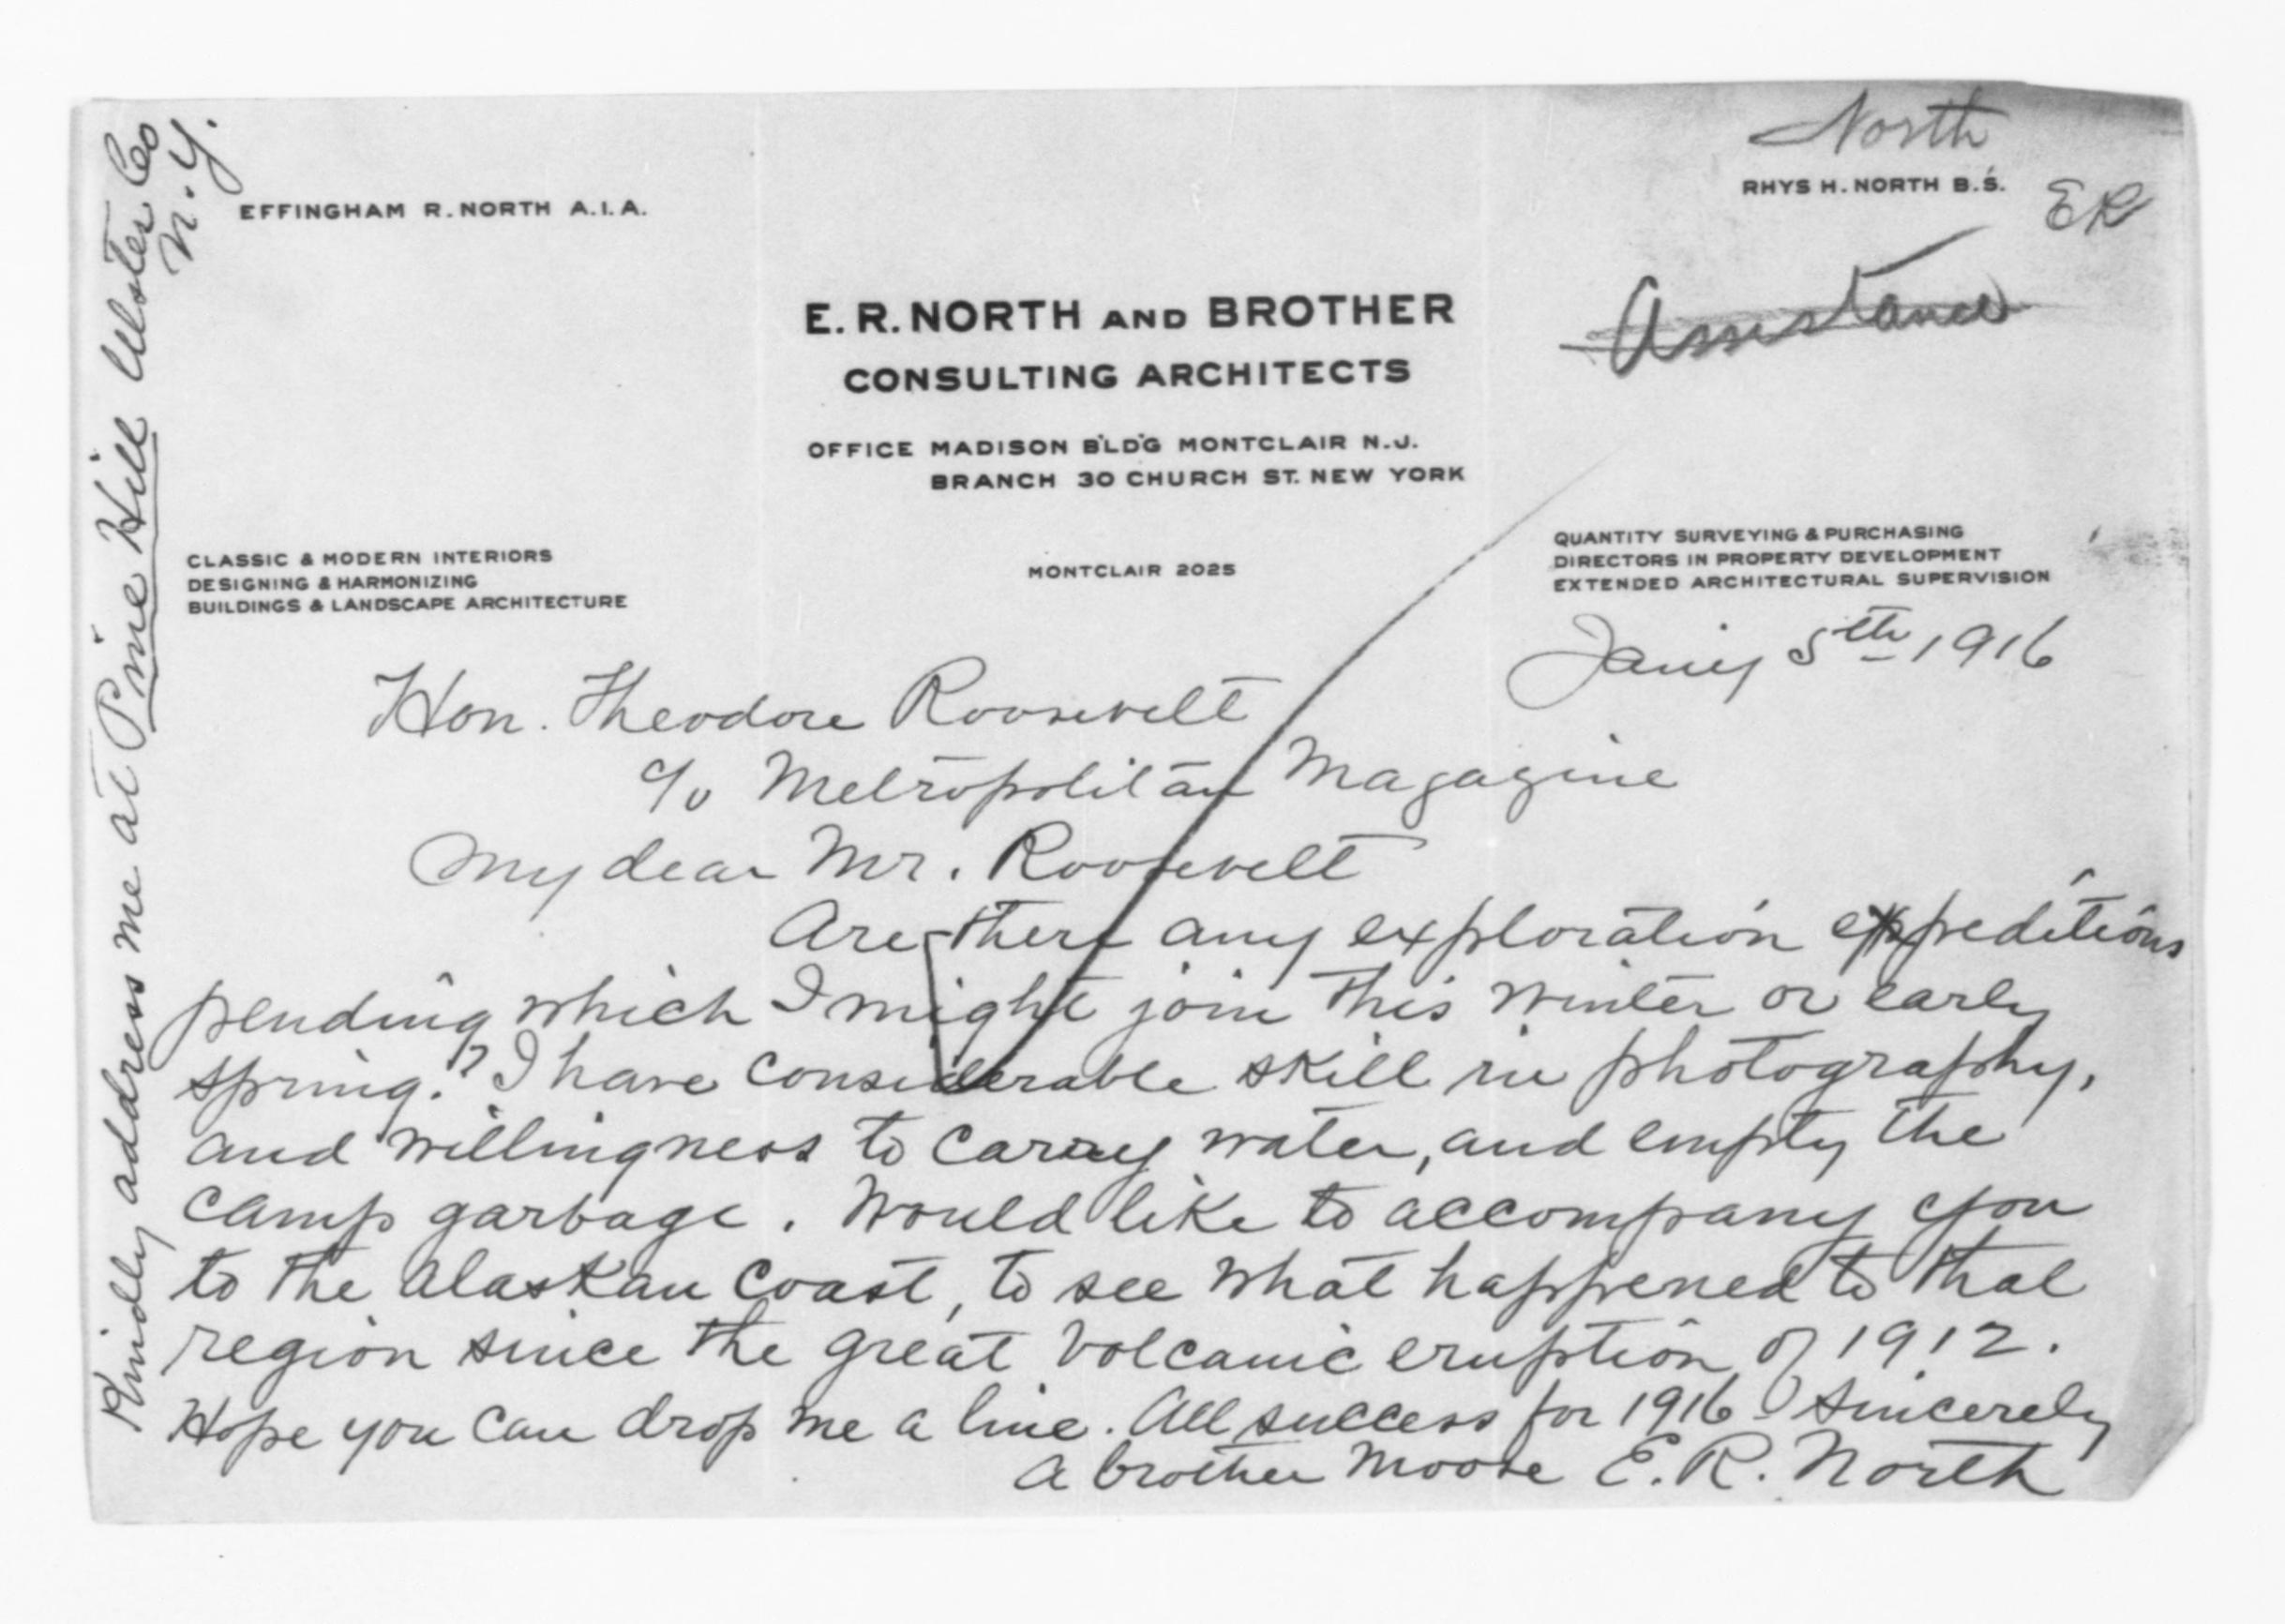 North
EFFINGHAM R. NORTH A.I.A.
RHYS H. NORTH B.S.
ER
E. R. NORTH AND BROTHER
CONSULTING ARCHITECTS
OFFICE MADISON B'LD'G MONTCLAIR N.J.
BRANCH 30 CHURCH ST. NEW YORK
CLASSIC & MODERN INTERIORS
DESIGNING & HARMONIZING
BUILDINGS & LANDSCAPE ARCHITECTURE
MONTCLAIR 2025
QUANTITY SURVEYING & PURCHASING
DIRECTORS IN PROPERTY DEVELOPMENT
EXTENDED ARCHITECTURAL SUPERVISION
Jany 5th 1916
Hon. Theodore Roosevelt
c/o Metropolitan Magazine
My dear Mr. Roosevelt
Are there any exploration expeditions
pending which I might join this winter or early
spring? I have considerable skill in photography,
and willingness to carry water, and empty the
camp garbage. Would like to accompany you
to the Alaskan Coast, to see what happened to that
region since the great volcanic eruption of 1912.
Hope you can drop me a line. All success for 1916. Sincerely
A brother Moose E. R. North
Kindly address me at Pine Hill Ulster Co
N.Y.